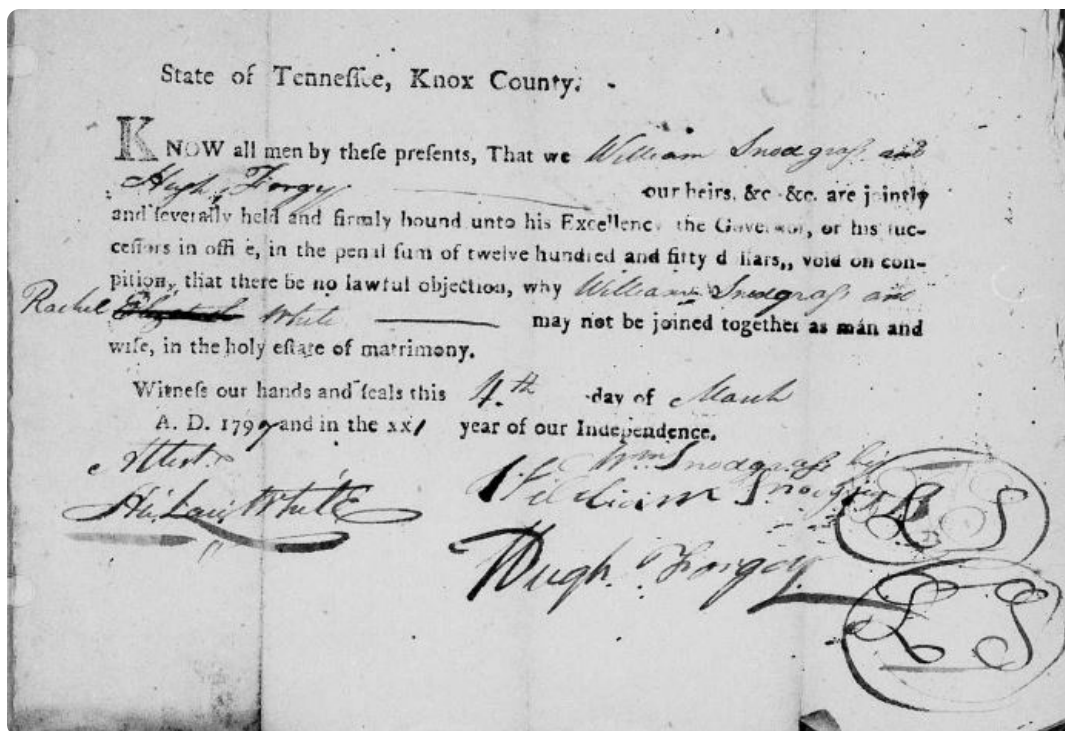 State of Tenneſſee, Knox County.
KNOW all men by theſe preſents, That we William Snodgraſs and
Hugh Forgy our heirs, &c. &c. are jointly
and ſeverally held and firmly bound unto his Excellency the Governor, or his ſuc-
ceſſors in offi e, in the penal ſum of twelve hundred and fifty d llars,, void on con-
pition, that there be no lawful objection, why William Snodgraſs and
Rachel Elizabeth White may not be joined together as man and
wife, in the holy eſtate of matrimony.
Witneſs our hands and ſeals this 4.th day of March
A. D. 1797 and in the xxi year of our Independence.
Attest.
Hu. Law. White
Wm Snodgraſs by
William Snodgraſs L S
Hugh Forgey L S